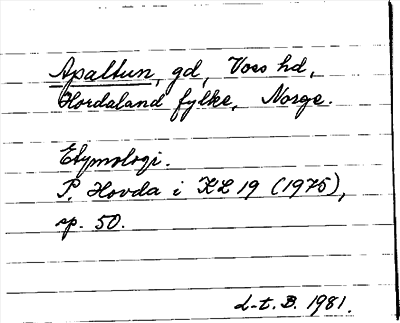 Apaltun, gd, Voss hd,
Hordaland fylke, Norge.
Etymologi.
P. Hovda i KL 19 (1975),
sp. 50.
L-t. B. 1981.